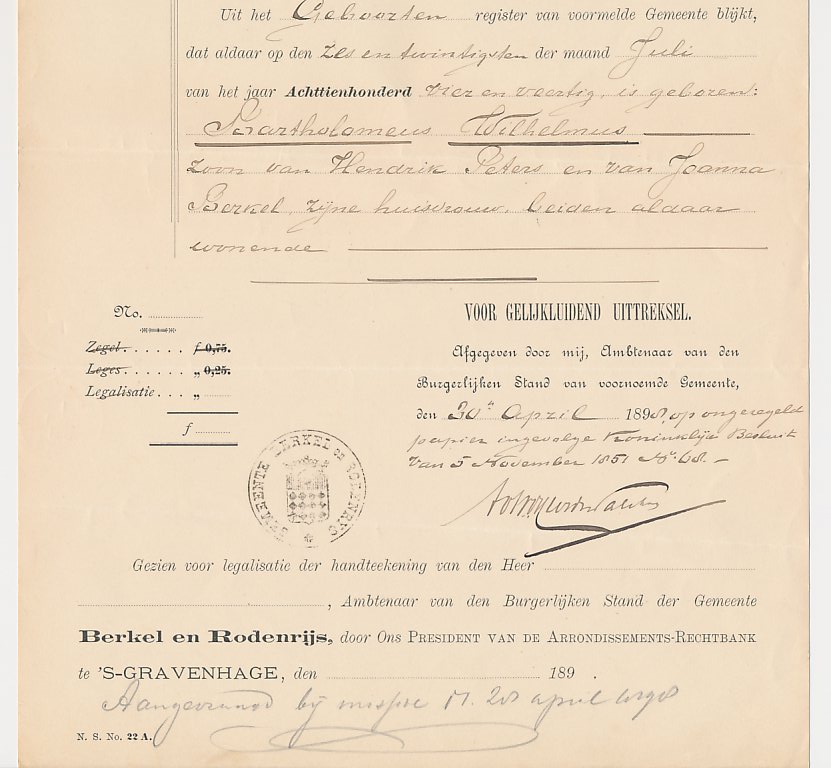 Uit het Geboorten register van voormelde Gemeente blijkt,
dat aldaar op den zes en twintigsten der maand Juli
van het jaar Achttienhonderd vier en veertig, is geboren:
Bartholomeus Wilhelmus
zoon van Hendrik Peters en van Joanna
Berkel, zijne huisvrouw, beiden aldaar
wonende
No.
Zegel. f 0,75.
Leges. „ 0,25.
Legalisatie. „
f
VOOR GELIJKLUIDEND UITTREKSEL.
Afgegeven door mij, Ambtenaar van den
Burgerlijken Stand van voornoemde Gemeente,
den 30n April 1898, op ongezegeld
papier ingevolge Koninklijk Besluit
van 5 November 1851 No. 68.
GEMEENTE BERKEL en RODENRYS
Gezien voor legalisatie der handteekening van den Heer
, Ambtenaar van den Burgerlijken Stand der Gemeente
Berkel en Rodenrijs, door Ons PRESIDENT VAN DE ARRONDISSEMENTS-RECHTBANK
te 'S-GRAVENHAGE, den 189 .
Aangevraagd bij missive 28 april
N. S. No. 22 A.